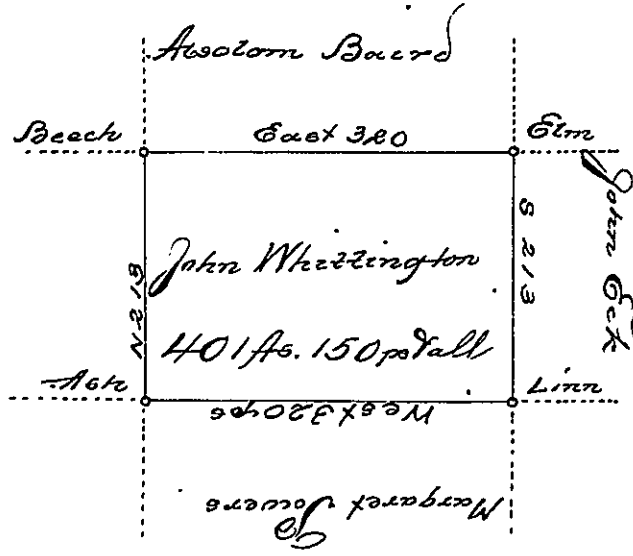 Absolom Baird
Beech East 320 Elm
John Eck
S 213
John Whittington
N 213
401 As. 150 ps & all
Ash Linn
West 320 ps
Margaret Powers